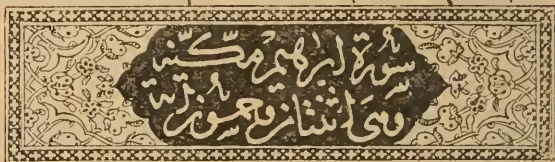 سورة ابرهيم مكية
وهى اثنتان وخمسون اية